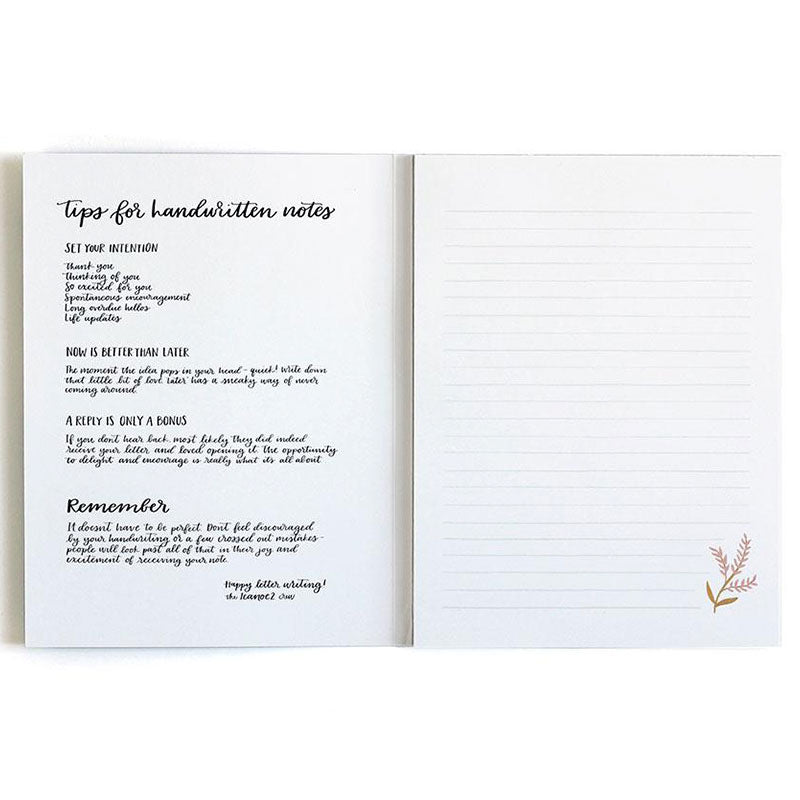 tips for handwritten notes
SET YOUR INTENTION
Thank you
Thinking of you
So excited for you
Spontaneous encouragement
Long overdue hellos
Life updates
NOW IS BETTER THAN LATER
The moment the idea pops in your head - quick! Write down
that little bit of love. 'Later' has a sneaky way of never
coming around.
A REPLY IS ONLY A BONUS
If you don't hear back, most likely they did indeed
receive your letter and loved opening it. The opportunity
to delight and encourage is really what it's all about.
Remember
It doesn't have to be perfect. Don't feel discouraged
by your handwriting or a few crossed out mistakes -
people will look past all of that in their joy and
excitement of receiving your note.
Happy letter writing!
the 1canoe2 crew